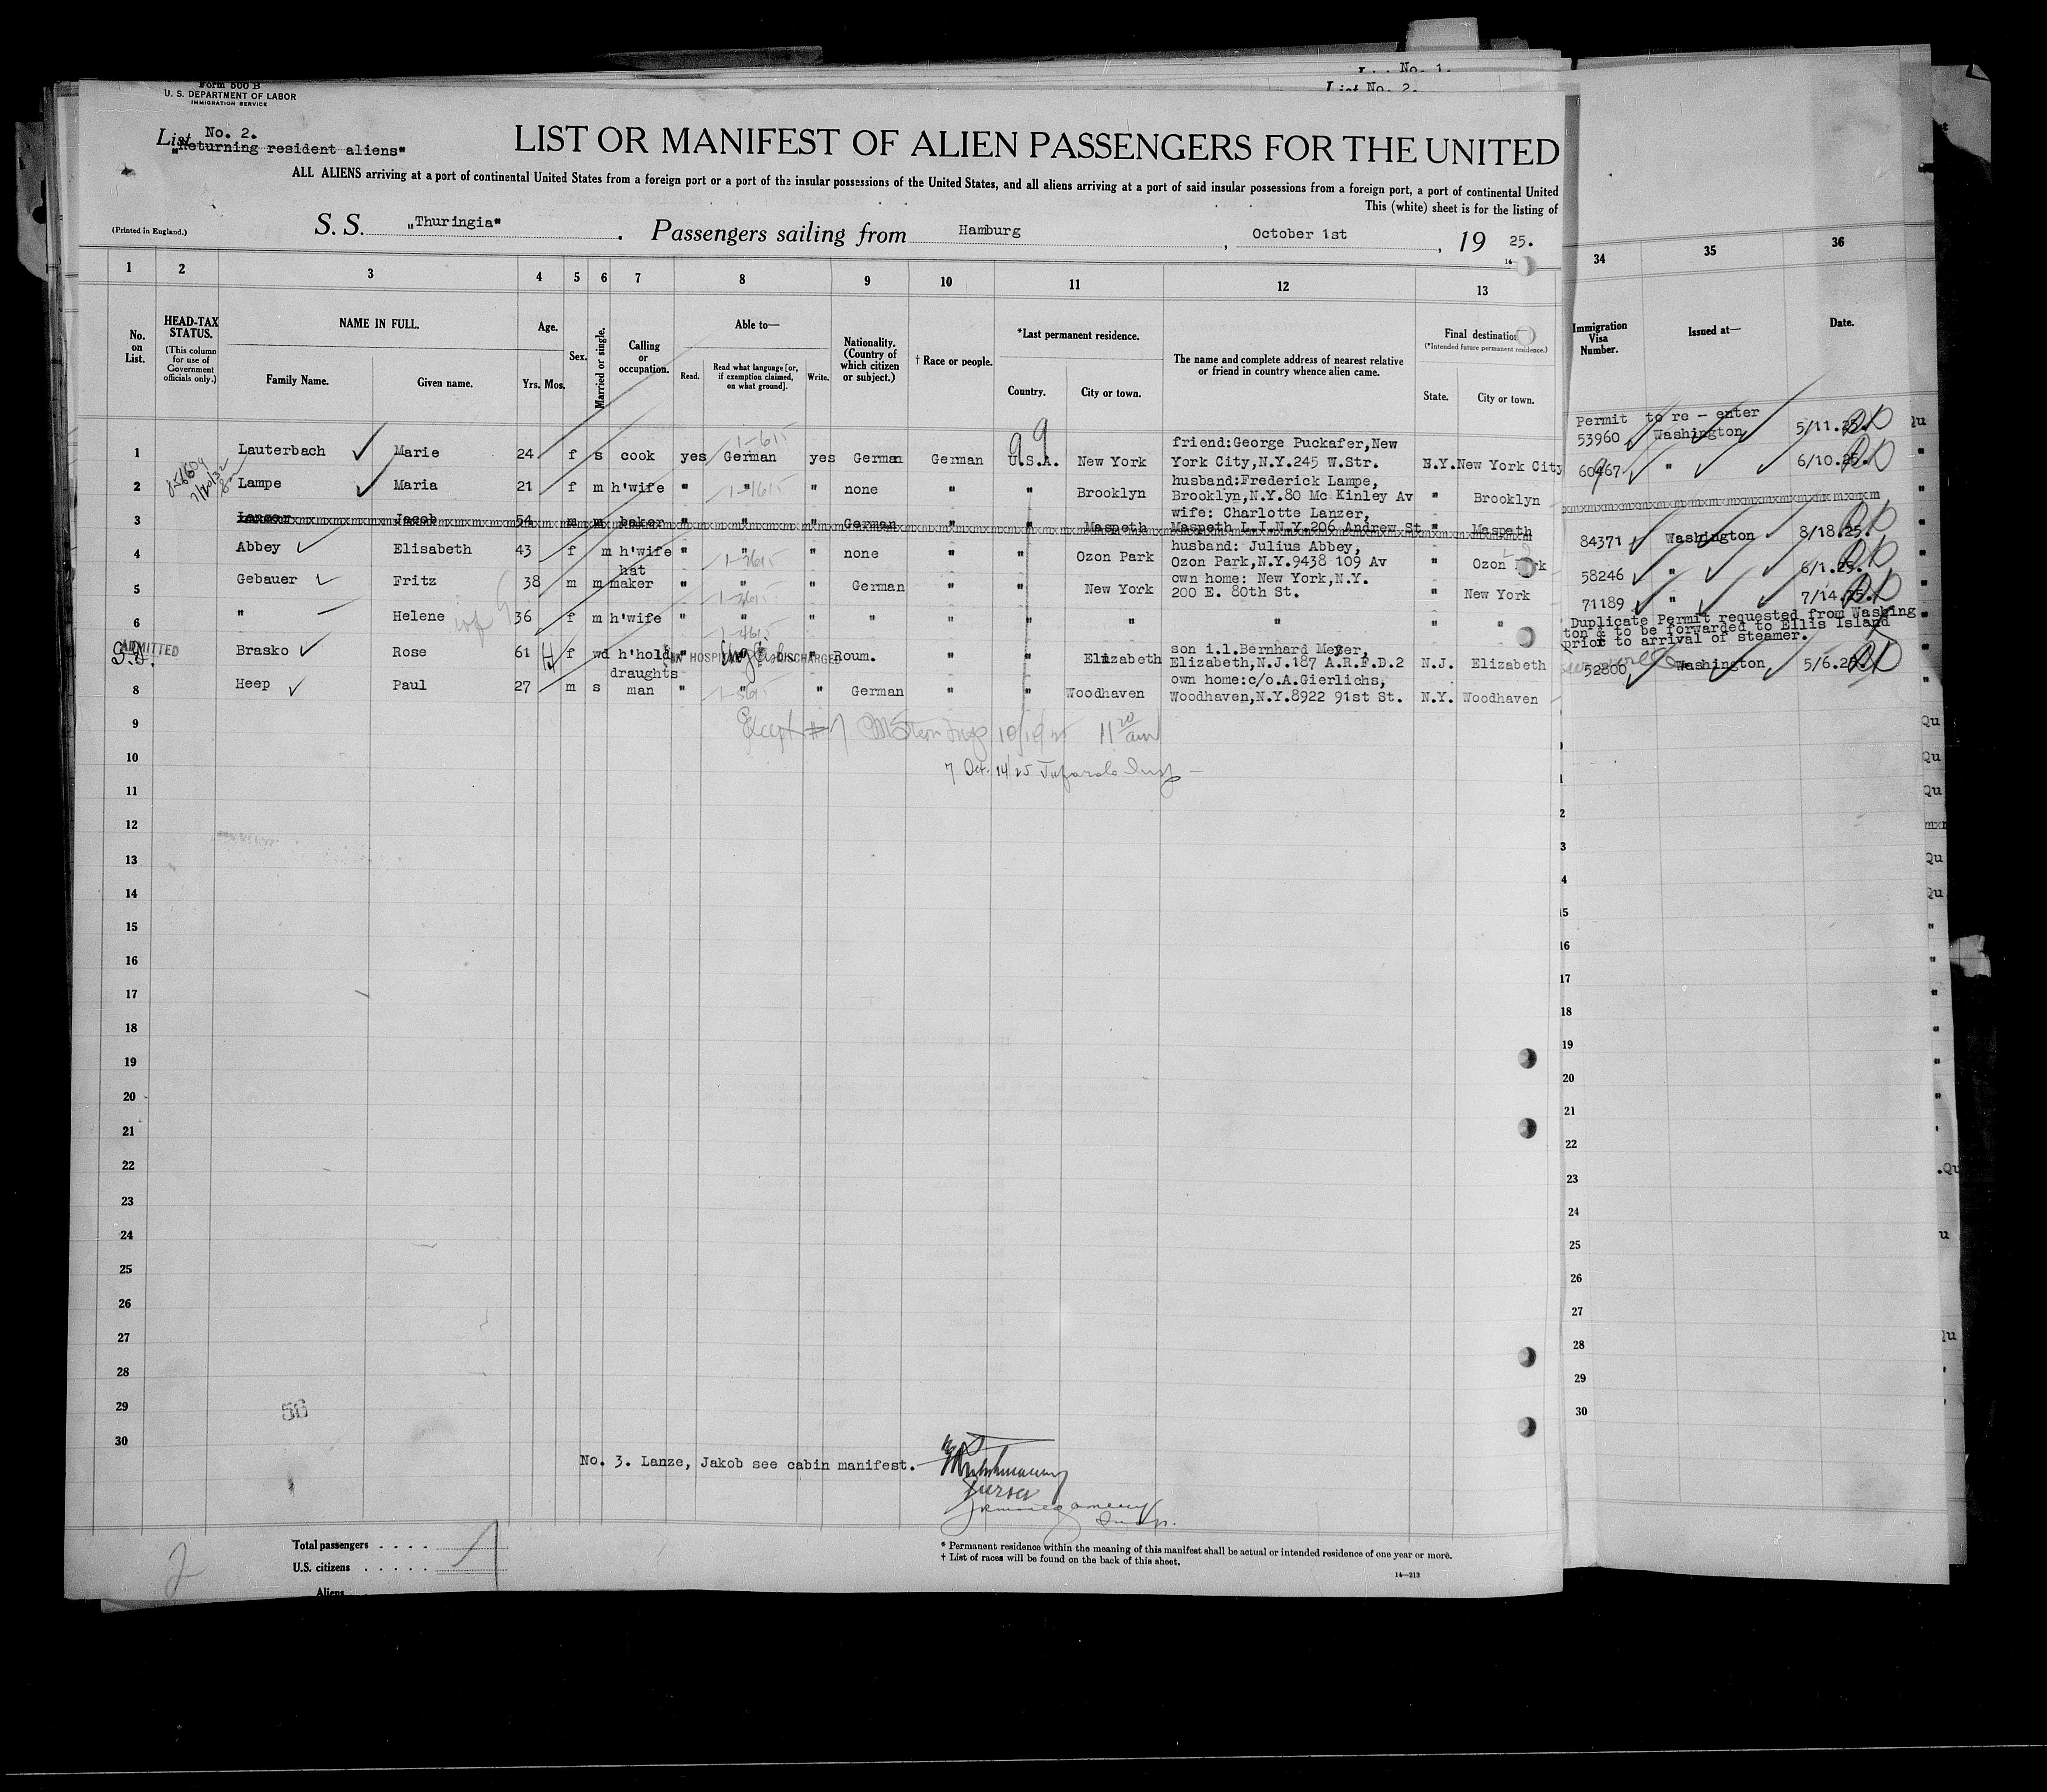 No. 1.
List No. 2.
Form 500 B
U. S. DEPARTMENT OF LABOR
IMMIGRATION SERVICE
List No. 2.
„Returning resident aliens"
LIST OR MANIFEST OF ALIEN PASSENGERS FOR THE UNITED
ALL ALIENS arriving at a port of continental United States from a foreign port or a port of the insular possessions of the United States, and all aliens arriving at a port of said insular possessions from a foreign port, a port of continental United
This (white) sheet is for the listing of
(Printed in England.)
S. S. „Thuringia" . Passengers sailing from Hamburg , October 1st , 19 25.
1 2 3 4 5 6 7 8 9 10 11 12 13 34 35 36
No. on List.
HEAD-TAX STATUS.
(This column for use of Government officials only.)
NAME IN FULL.
Family Name. Given name.
Age.
Yrs. Mos.
Sex.
Married or single.
Calling or occupation.
Able to—
Read. Read what language [or, if exemption claimed, on what ground]. Write.
Nationality. (Country of which citizen or subject.)
† Race or people.
*Last permanent residence.
Country. City or town.
The name and complete address of nearest relative or friend in country whence alien came.
Final destination
(*Intended future permanent residence.)
State. City or town.
Immigration Visa Number.
Issued at—
Date.
Permit to re - enter
1 Lauterbach Marie 24 f s cook yes German yes German German U.S.A. New York friend:George Puckafer,New York City,N.Y.245 W.Str. N.Y. New York City 53960 Washington 5/11.25.
2 Lampe Maria 21 f m h'wife " " " none " " Brooklyn husband:Frederick Lampe, Brooklyn,N.Y.80 Mc Kinley Av " Brooklyn 60467 " 6/10.25.
3 Lanzer Jacob 54 m m baker " " " German " " Maspeth wife: Charlotte Lanzer, Maspeth L.I.N.Y.206 Andrew St " Maspeth
4 Abbey Elisabeth 43 f m h'wife " " " none " " Ozon Park husband: Julius Abbey, Ozon Park,N.Y.9438 109 Av " Ozon Park 84371 Washington 8/18.25.
5 Gebauer Fritz 38 m m hat maker " " " German " " New York own home: New York,N.Y. 200 E. 80th St. " New York 58246 " 6/1.25.
6 " Helene 36 f m h'wife " " " " " " " " " " 71189 " 7/14.25.
Duplicate Permit requested from Washing
ton & to be forwarded to Ellis Island
prior to arrival of steamer.
ADMITTED
S.I. Brasko Rose 61 f wd h'hold " English " Roum. " " Elizabeth son i.l.Bernhard Meyer, Elizabeth,N.J.187 A.R.F.D.2 N.J. Elizabeth
IN HOSPITAL DISCHARGED
8 Heep Paul 27 m s draughts man " " " German " " Woodhaven own home:c/o.A.Gierlichs, Woodhaven,N.Y.8922 91st St. N.Y. Woodhaven 52800 Washington 5/6.25.
9
Except #7 11 20 am
10
7 Oct. 14/25
11
12
13
14
15
16
17
18
19
20
21
22
23
24
25
26
27
28
29
30
56
No. 3. Lanze, Jakob see cabin manifest.
Total passengers . . . .
U.S. citizens . . . . .
Aliens
2
* Permanent residence within the meaning of this manifest shall be actual or intended residence of one year or more.
† List of races will be found on the back of this sheet.
14—213